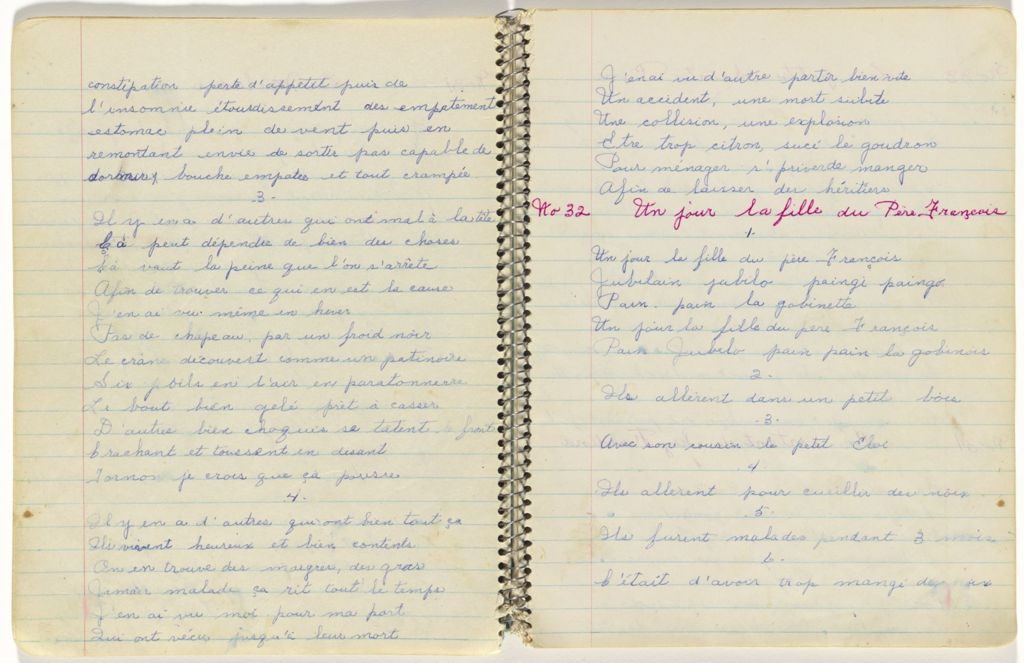 constipation perte d'appétit puis de
l'insomnie étourdissement des empatement
estomac plein de vent puis en
remontant envie de sortir pas capable de
dormir, bouche empatée et tout crampée
3.
Il y en a d'autres qui ont mal à la tête
Çà peut dépendre de bien des choses
Çà vaut la peine que l'on s'arrête
Afin de trouver ce qui en est la cause
J'en ai vu même en hiver
Pas de chapeau, par un froid noir
Le crâne découvert comme un patinoire
Six poils en l'air en paratonnerre
Le bout bien gelé prêt à casser
D'autres bien choqués se tatent le front
Crachant et toussent en disant
je crois que ça
4.
Il y en a d'autres qui ont bien tout ça
Ils vivent heureux et bien contents
On en trouve des maigres, des gras
Jamais malade ça rit tout le temps
J'en ai vu moi pour ma part
Qui ont vécu jusqu'à leur mort
J'enai vu d'autre partir bien vite
Un accident, une mort subite
Une collision, une explosion
Etre trop citron, sucé le goudron
Pour ménager s'priver de manger
Afin de laisser des héritiers
No 32 Un jour la fille du Père François
1.
Un jour la fille du père François
Jubilain jubilo paingi paingo
Pain pain la gobinette
Un jour la fille du père François
Pain Juibilo pain pain la gobinois
2.
Ils allèrent dans un petit bois
3.
Avec son cousin le petit Eloi
4
Ils allerent pour cueillir des nois
5.
Ils furent malades pendant 3 mois
6.
C'était d'avoir trop mangé de